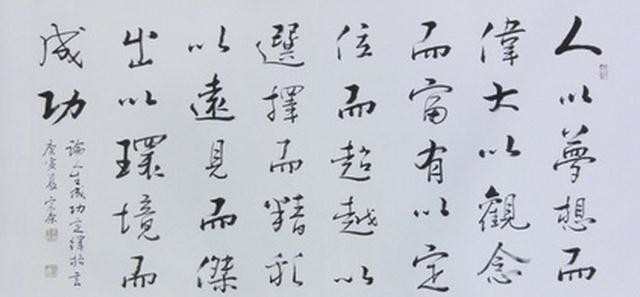 人以夢想而
偉大以觀念
而富有以定
位而超越以
選擇而精彩
以遠見而傑
出以環境而
成功
論人生成功之
庚寅